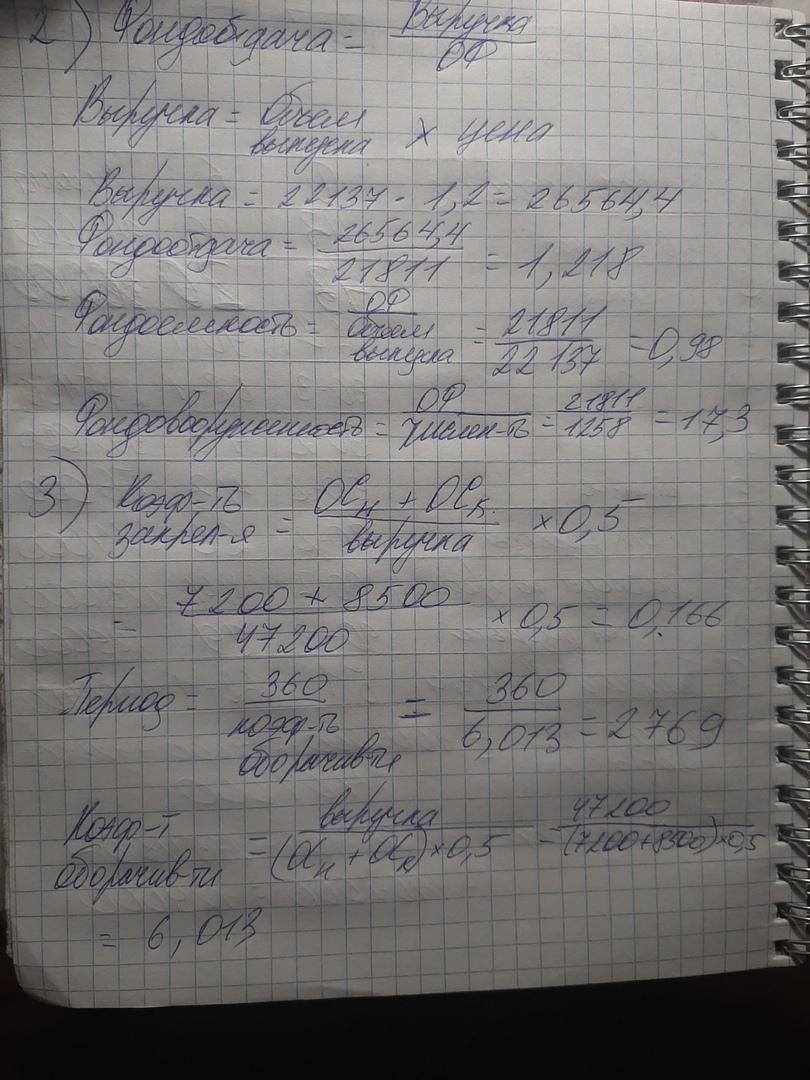 2) Фондоотдача = Выручка / ОФ
Выручка = Объем выпуска × цена
Выручка = 22137 · 1,2 = 26564,4
Фондоотдача = 26564,4 / 21811 = 1,218
Фондоемкость = ОФ / Объем выпуска = 21811 / 22137 = 0,98
Фондовооруженность = ОФ / числен-ть = 21811 / 1258 = 17,3
3) Коэф-ть закрел-я = ОСн + ОСк / выручка × 0,5
= 7200 + 8500 / 47200 × 0,5 = 0,166
Период = 360 / коэф-ть оборачив-ти = 360 / 6,013 = 2769
Коэф-т оборачив-ти = выручка / (ОСн + ОСк) × 0,5 = 47200 / (7200+8500) × 0,5
= 6,013